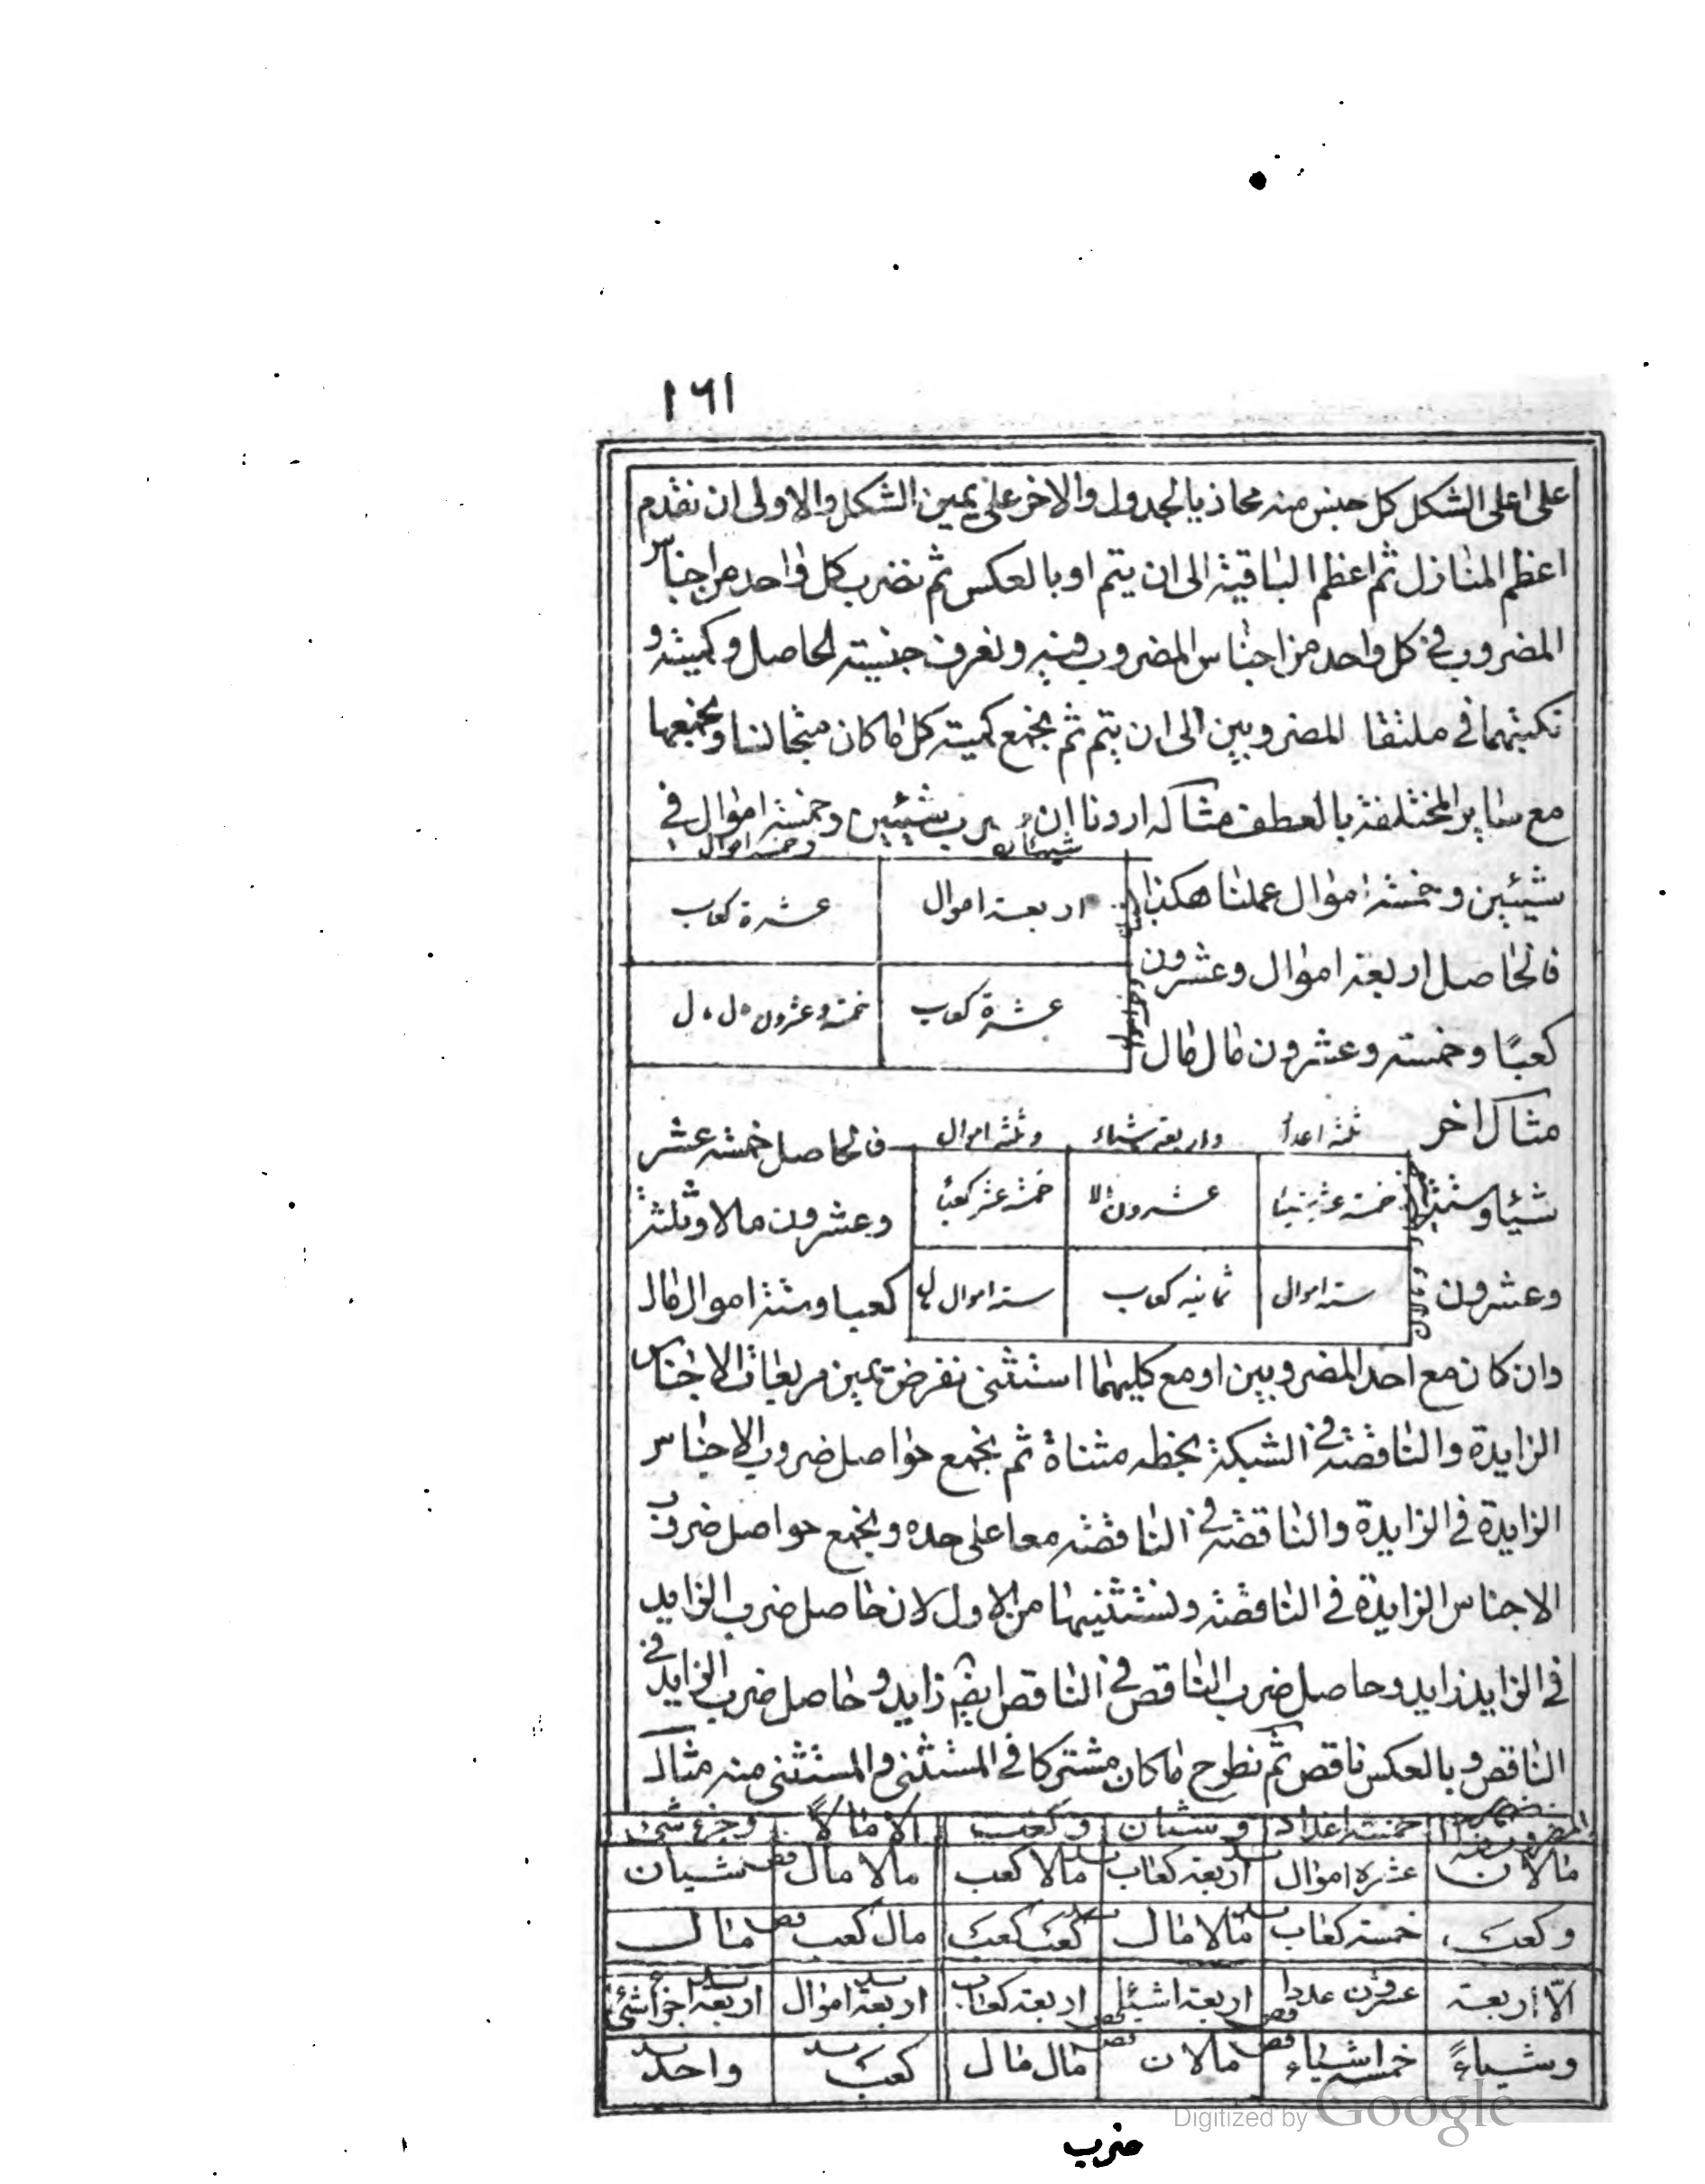 ١٦١
على اعلى الشكل كل جنس منه محاذيا لجدول والاخر على يمين الشكل والاولى ان نقدم
اعظم المنازل ثم اعظم الباقية الى ان يتم او بالعكس ثم نضرب كل واحد من اجناس
المضروب في كل واحد من اجناس المضروب فيه ونعرف جنسية الحاصل وكميته و
نكتبهما في ملتقا المضروبين الى ان يتم ثم نجمع كمية كل ما كان متجانسا ونجمعها
مع ساير المختلفة بالعطف مثاله اردنا ان شيئين وخمسة اموال في
شيئان وخمسة اموال
شيئين وخمسة اموال عملنا هكذا اربعة اموال عشرة كعاب
فالحاصل اربعة اموال وعشرون
عشرة كعاب خمسة وعشرون مال مال
كعبًا وخمسة وعشرون مال مال
مثال اخر ثلثة اعداد واربعة اشياء وثلثة اموال فالحاصل خمسة عشر
شيئا وستة خمسة عشر شيئا عشرون مالا خمسة عشر كعبا وعشرون مالا وثلثة
وعشرون ستة اموال ثمانية كعاب ستة اموال مال كعبا وستة اموال مال
وان كان مع احد المضروبين او مع كليهما استثنى نفرض بين مربعات الاجناس
الزايدة والناقصة في الشبكة بخطه مثناة ثم نجمع حواصل ضروب الاجناس
الزايدة في الزايدة والناقصة في الناقصة معا على حده ونجمع حواصل ضروب
الاجناس الزايدة في الناقصة ونستثنيها من الاول لان حاصل ضرب الزايد
في الزايد زايد وحاصل ضرب الناقص في الناقص ايضا زايد وحاصل ضرب الزايد في
الناقص وبالعكس ناقص ثم نطرح ما كان مشتركا في المستثنى والمستثنى منه مثاله
خمسة اعداد وشيئان وكعب الا مالًا وجزء شئ
مالان عشرة اموال اربعة كعاب مالا كعب مالا مال شيئان
وكعب خمسة كعاب مالا مال كعب كعب مال كعب مال
الّا اربعة عشرون عددا اربعة اشياء اربعة كعاب اربعة اموال اربعة اجزاء شئ
وشيئاً خمسة اشياء مالان مال مال كعب واحد
ضرب
Digitized by Google